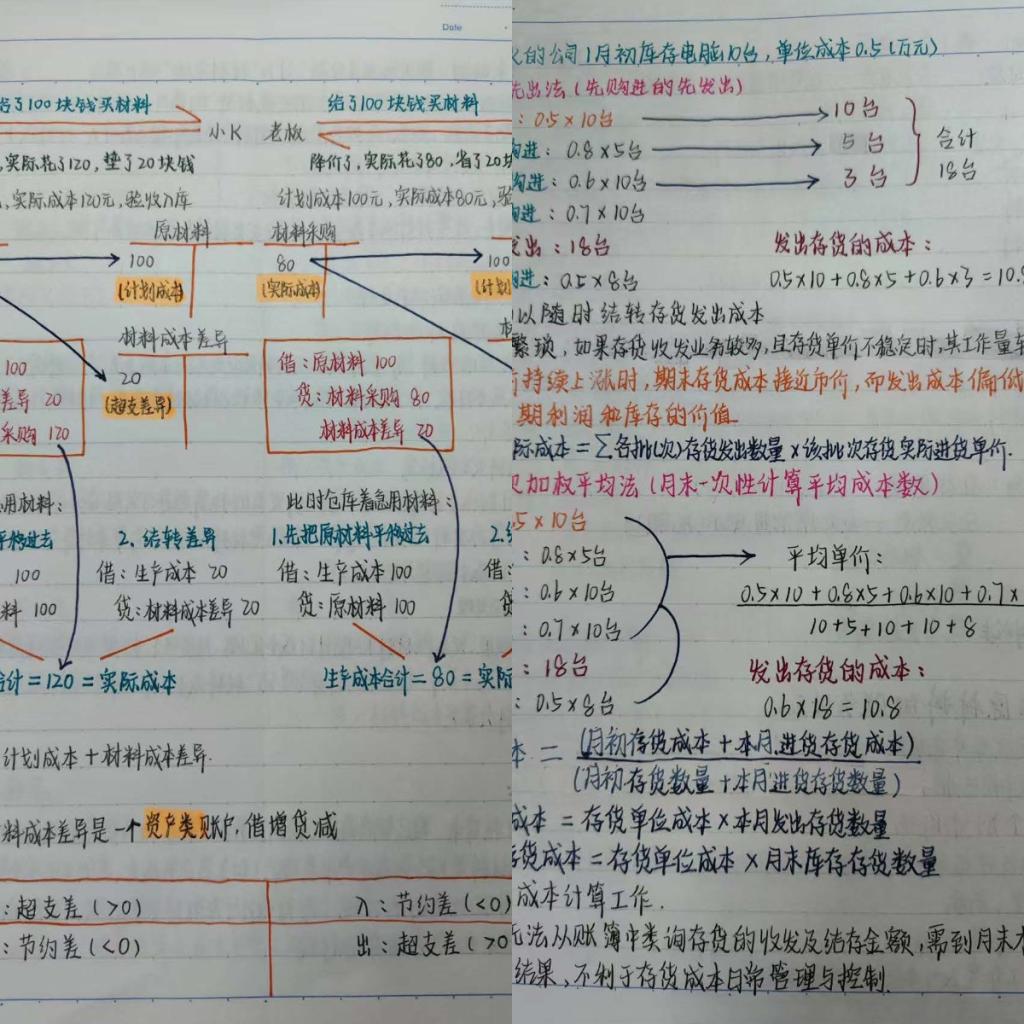 Date
给了100块钱买材料 给了100块钱买材料
小K 老板
,实际花了120,垫了20块钱 降价了,实际花了80,省了20块
,实际成本120元,验收入库 计划成本100元,实际成本80元,验
原材料 材料采购
100 80 100
(计划成本) (实际成本) (计划
材料成本差异
20
(超支差异)
100
差异 20
采购 120
借:原材料 100
贷:材料采购 80
材料成本差异 20
用材料: 此时仓库着急用材料:
平移过去 2.结转差异 1.先把原材料平移过去 2.结
100 借:生产成本 20 借:生产成本 100 借:
料 100 贷:材料成本差异 20 贷:原材料 100 贷
合计=120=实际成本 生产成本合计=80=实际
计划成本+材料成本差异.
料成本差异是一个资产类账户,借增贷减
:超支差(>0) 入:节约差(<0)
:节约差(<0) 出:超支差(>0
的公司1月初库存电脑10台,单位成本0.5(万元)
先出法(先购进的先发出)
:0.5×10台 10台
购进:0.8×5台 5台
购进:0.6×10台 3台
合计
18台
购进:0.7×10台
发出:18台 发出存货的成本:
购进:0.5×8台 0.5×10+0.8×5+0.6×3=10.8
以随时结转存货发出成本
繁琐,如果存货收发业务较多,且存货单价不稳定时,其工作量车
持续上涨时,期末存货成本接近市价,而发出成本偏低
期利润和库存的价值.
际成本=∑各批(次)存货发出数量×该批次存货实际进货单价.
加权平均法(月末一次性计算平均成本数)
5×10台
:0.8×5台 平均单价:
:0.6×10台 0.5×10+0.8×5+0.6×10+0.7×
:0.7×10台 10+5+10+10+8
:18台 发出存货的成本:
:0.5×8台 0.6×18=10.8
本=(月初存货成本+本月进货存货成本)
(月初存货数量+本月进货存货数量)
成本=存货单位成本×本月发出存货数量
存货成本=存货单位成本×月末库存存货数量
成本计算工作.
无法从账簿中类询存货的收发及结存金额,需到月末才
结果,不利于存货成本日常管理与控制.